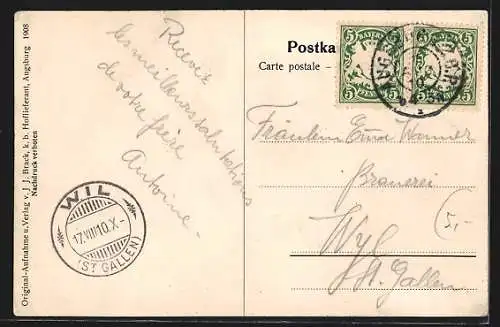 Original-Aufnahme u. Verlag v. J. J. Brack, k. b. Hoflieferant, Augsburg 1908
Nachdruck verboten
Recevez
les meilleures salutations
de votre frère
Antoine.
WIL
17.VIII.10.X-
(ST GALLEN)
Postka
Carte postale –
BAYERN
5 5
5 5
Fräulein
Brauerei
Wyl
St. Gallen
5,-